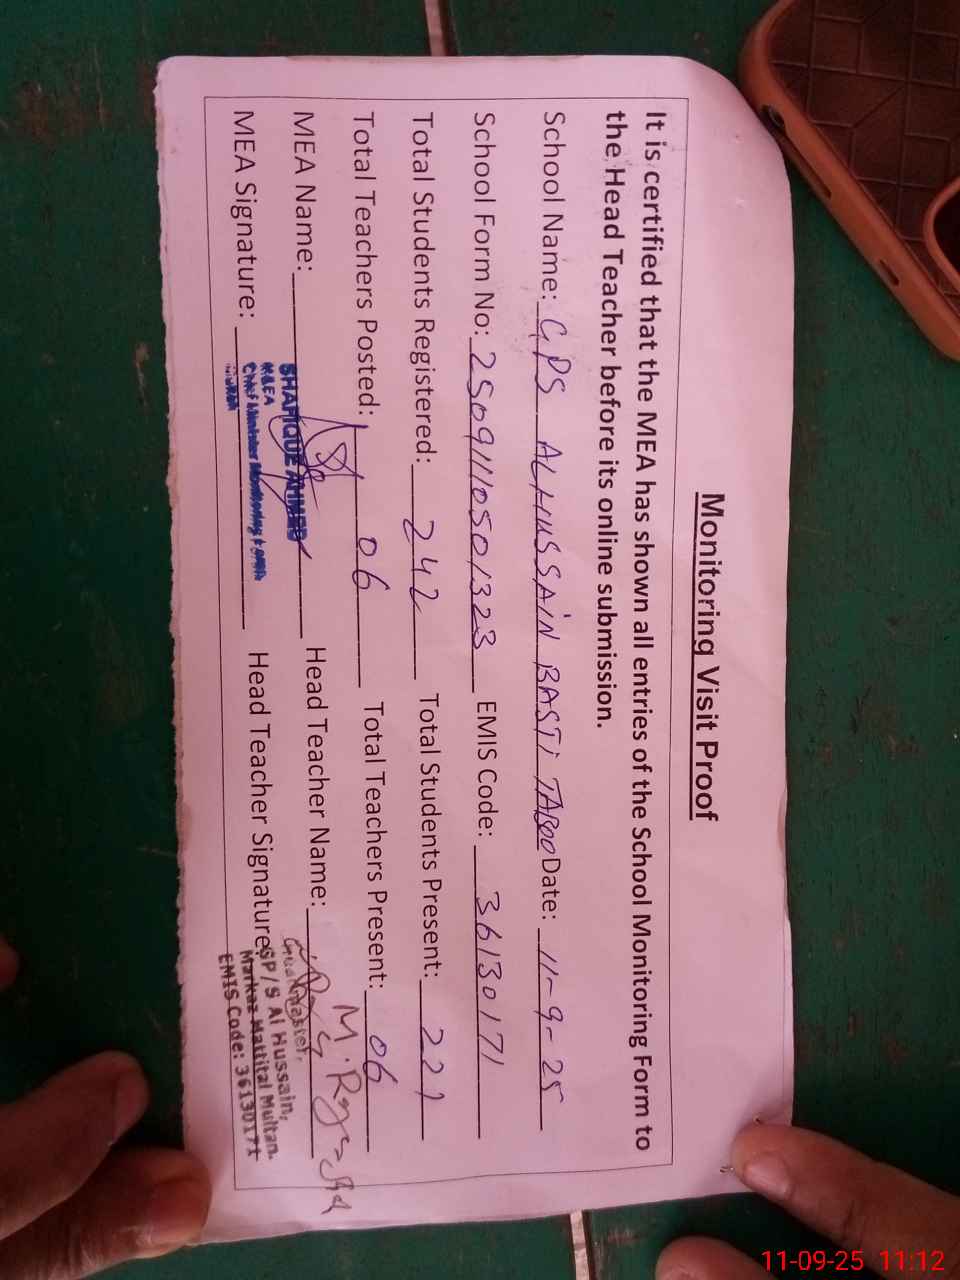 Monitoring Visit Proof
It is certified that the MEA has shown all entries of the School Monitoring Form to
the Head Teacher before its online submission.
School Name: GPS ALHUSSAIN BASTI TABOO Date: 11-9-25
School Form No: 25091110501323 EMIS Code: 36130171
Total Students Registered: 242 Total Students Present: 221
Total Teachers Posted: 06 Total Teachers Present: 06
MEA Name: SHAFIQUE AHMED Head Teacher Name:
MEA Signature: Head Teacher Signature:
M&EA
Chief Minister Monitoring Force
Headmaster,
GP/S Al Hussain,
Markaz Mattital Multan.
EMIS Code: 36130171
11-09-25 11:12